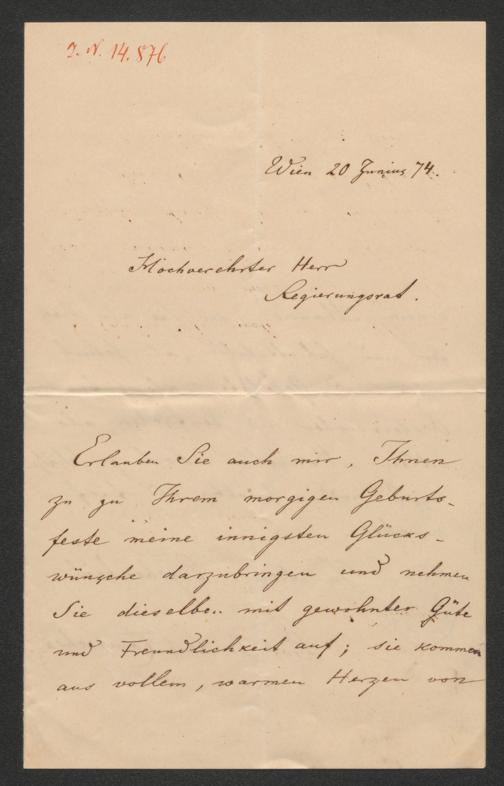 J. N. 14.876
Wien 20 Junius 74.
Hochverehrter Herr
Regierungsrat.
Erlauben Sie auch mir, Ihnen
zu zu Ihrem morgigen Geburts-
feste meine innigsten Glücks-
wünsche darzubringen und nehmen
Sie dieselben mit gewohnter Güte
und Freundlichkeit auf; sie kommen
aus vollem, warmen Herzen von